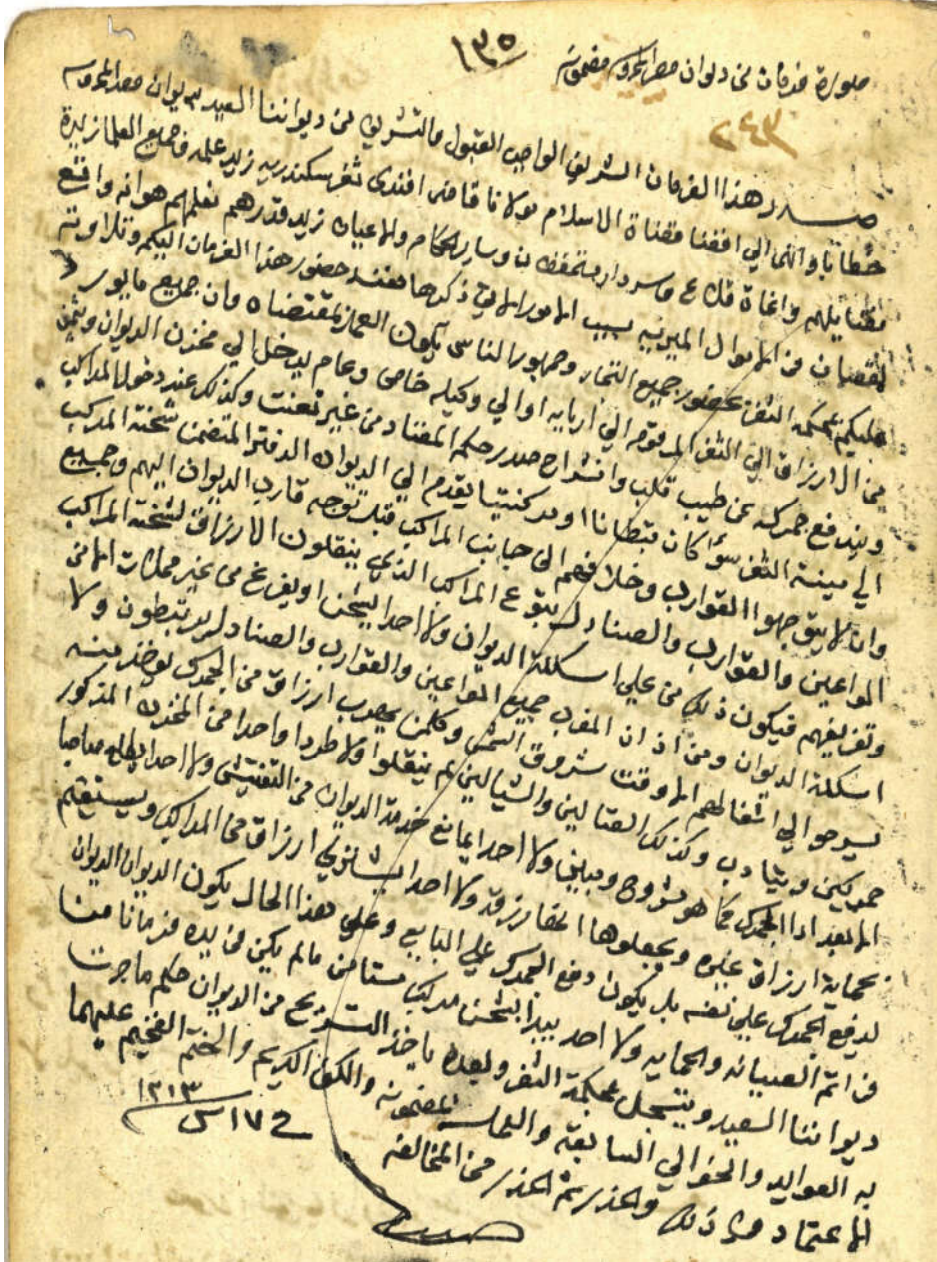 صورة فرمان من ديوان مصر المحروسه مضمونه
١٣٥
٢٤٣
صدر هذا الفرمان الشريف الواجب القبول والتشريف من ديواننا السعيد بديوان مصر المحروسه
خطابا والتما الي اقضا قضاة الاسلام مولانا قاضى افندى ثغر سكندريه زيد علمه وجميع العلما زيدة
فضايلهم واغاة قلاع وسردار مستحفظان وساير الحكام والاعيان زيد قدرهم نعلمهم هو انه واقع
نقصان من الاموال الميريه بسبب الامور الاتي ذكرها فعند حضور هذا الفرمان اليكم وتلاوته
عليكم بمحكمة الثغر بحضور جميع التجار وجمهور الناس يكون العمل بمقتضاه وان جميع ما يورد
من الارزاق الي الثغر المرقوم الي اربابه او الي وكيله خاص وعام يدخل الي مخزن الديوان ويثمن
ويندفع جمركه عن طيب قلب وانشراح صدر حكم المعتاد من غير تعنت وكذلك عند دخول المراكب
الي مينة الثغر سوا كان قبطانا او مركبتيا يقدم الي الديوان الدفتر المتضمن شحنة المركب
وان لا يتوجهوا القوارب وخلافهم الى جانب المراكب قبل توجه قارب الديوان اليهم وجميع
المواعين والقوارب والصنادل بتوع المراكب الذي ينقلون الارزاق لشحنة المراكب
وتفريغهم فيكون ذلك من علي اسكلة الديوان ولا احد يشحن او يفرغ من غير محلات الا من
اسكلة الديوان ومن اذان المغرب جميع المواعين والقوارب والصنادل يرتبطون ولا
يسرحوا الي اشغالهم الا وقت شروق الشمس وكلمن يهرب ارزاق من الجمرك يوخذ منه
جمركين ويتادب وكذلك العتالين والشيالين لم ينقلوا ولا طردا واحدا من المخزن المذكور
الا بعد ادا الجمرك كما هو مشروح ومبين ولا احد يمانع خدمة الديوان من التفتيش ولا احد
بحماية ارزاق غيره ويجعلوها انها رزقه ولا احد يشتري ارزاق من المراكب ويستقيم
لدفع الجمرك علي نفسه بل يكون دفع الجمرك علي البايع وعلي هذا الحال يكون الديوان
في اتم الصيانه والحمايه ولا احد يبدا بشحن مركب مستامن مالم يكن في يده فرمانا من
ديواننا السعيد ويتسجل بمحكمة الثغر وبعده ياخذ التسريح من الديوان حكم ما جرت
به العوايد والخوالي السابقة والعمل بمضمونه والكف الكريم والختم الفخيم عليهما
الاعتماد من ذلك والحذر ثم الحذر من المخالفه
في ١٧ س ١٢١٣